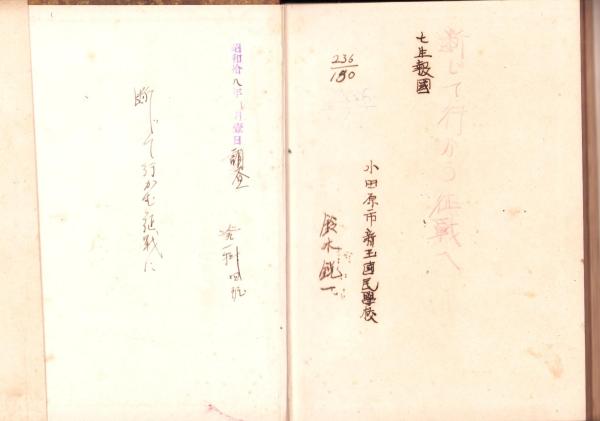 断じて行かう征戰へ
七生報國
236
150
小田原市新玉國民學校
鈴木
昭和拾八年 月壹日
調查
断じて行かむ征戰に